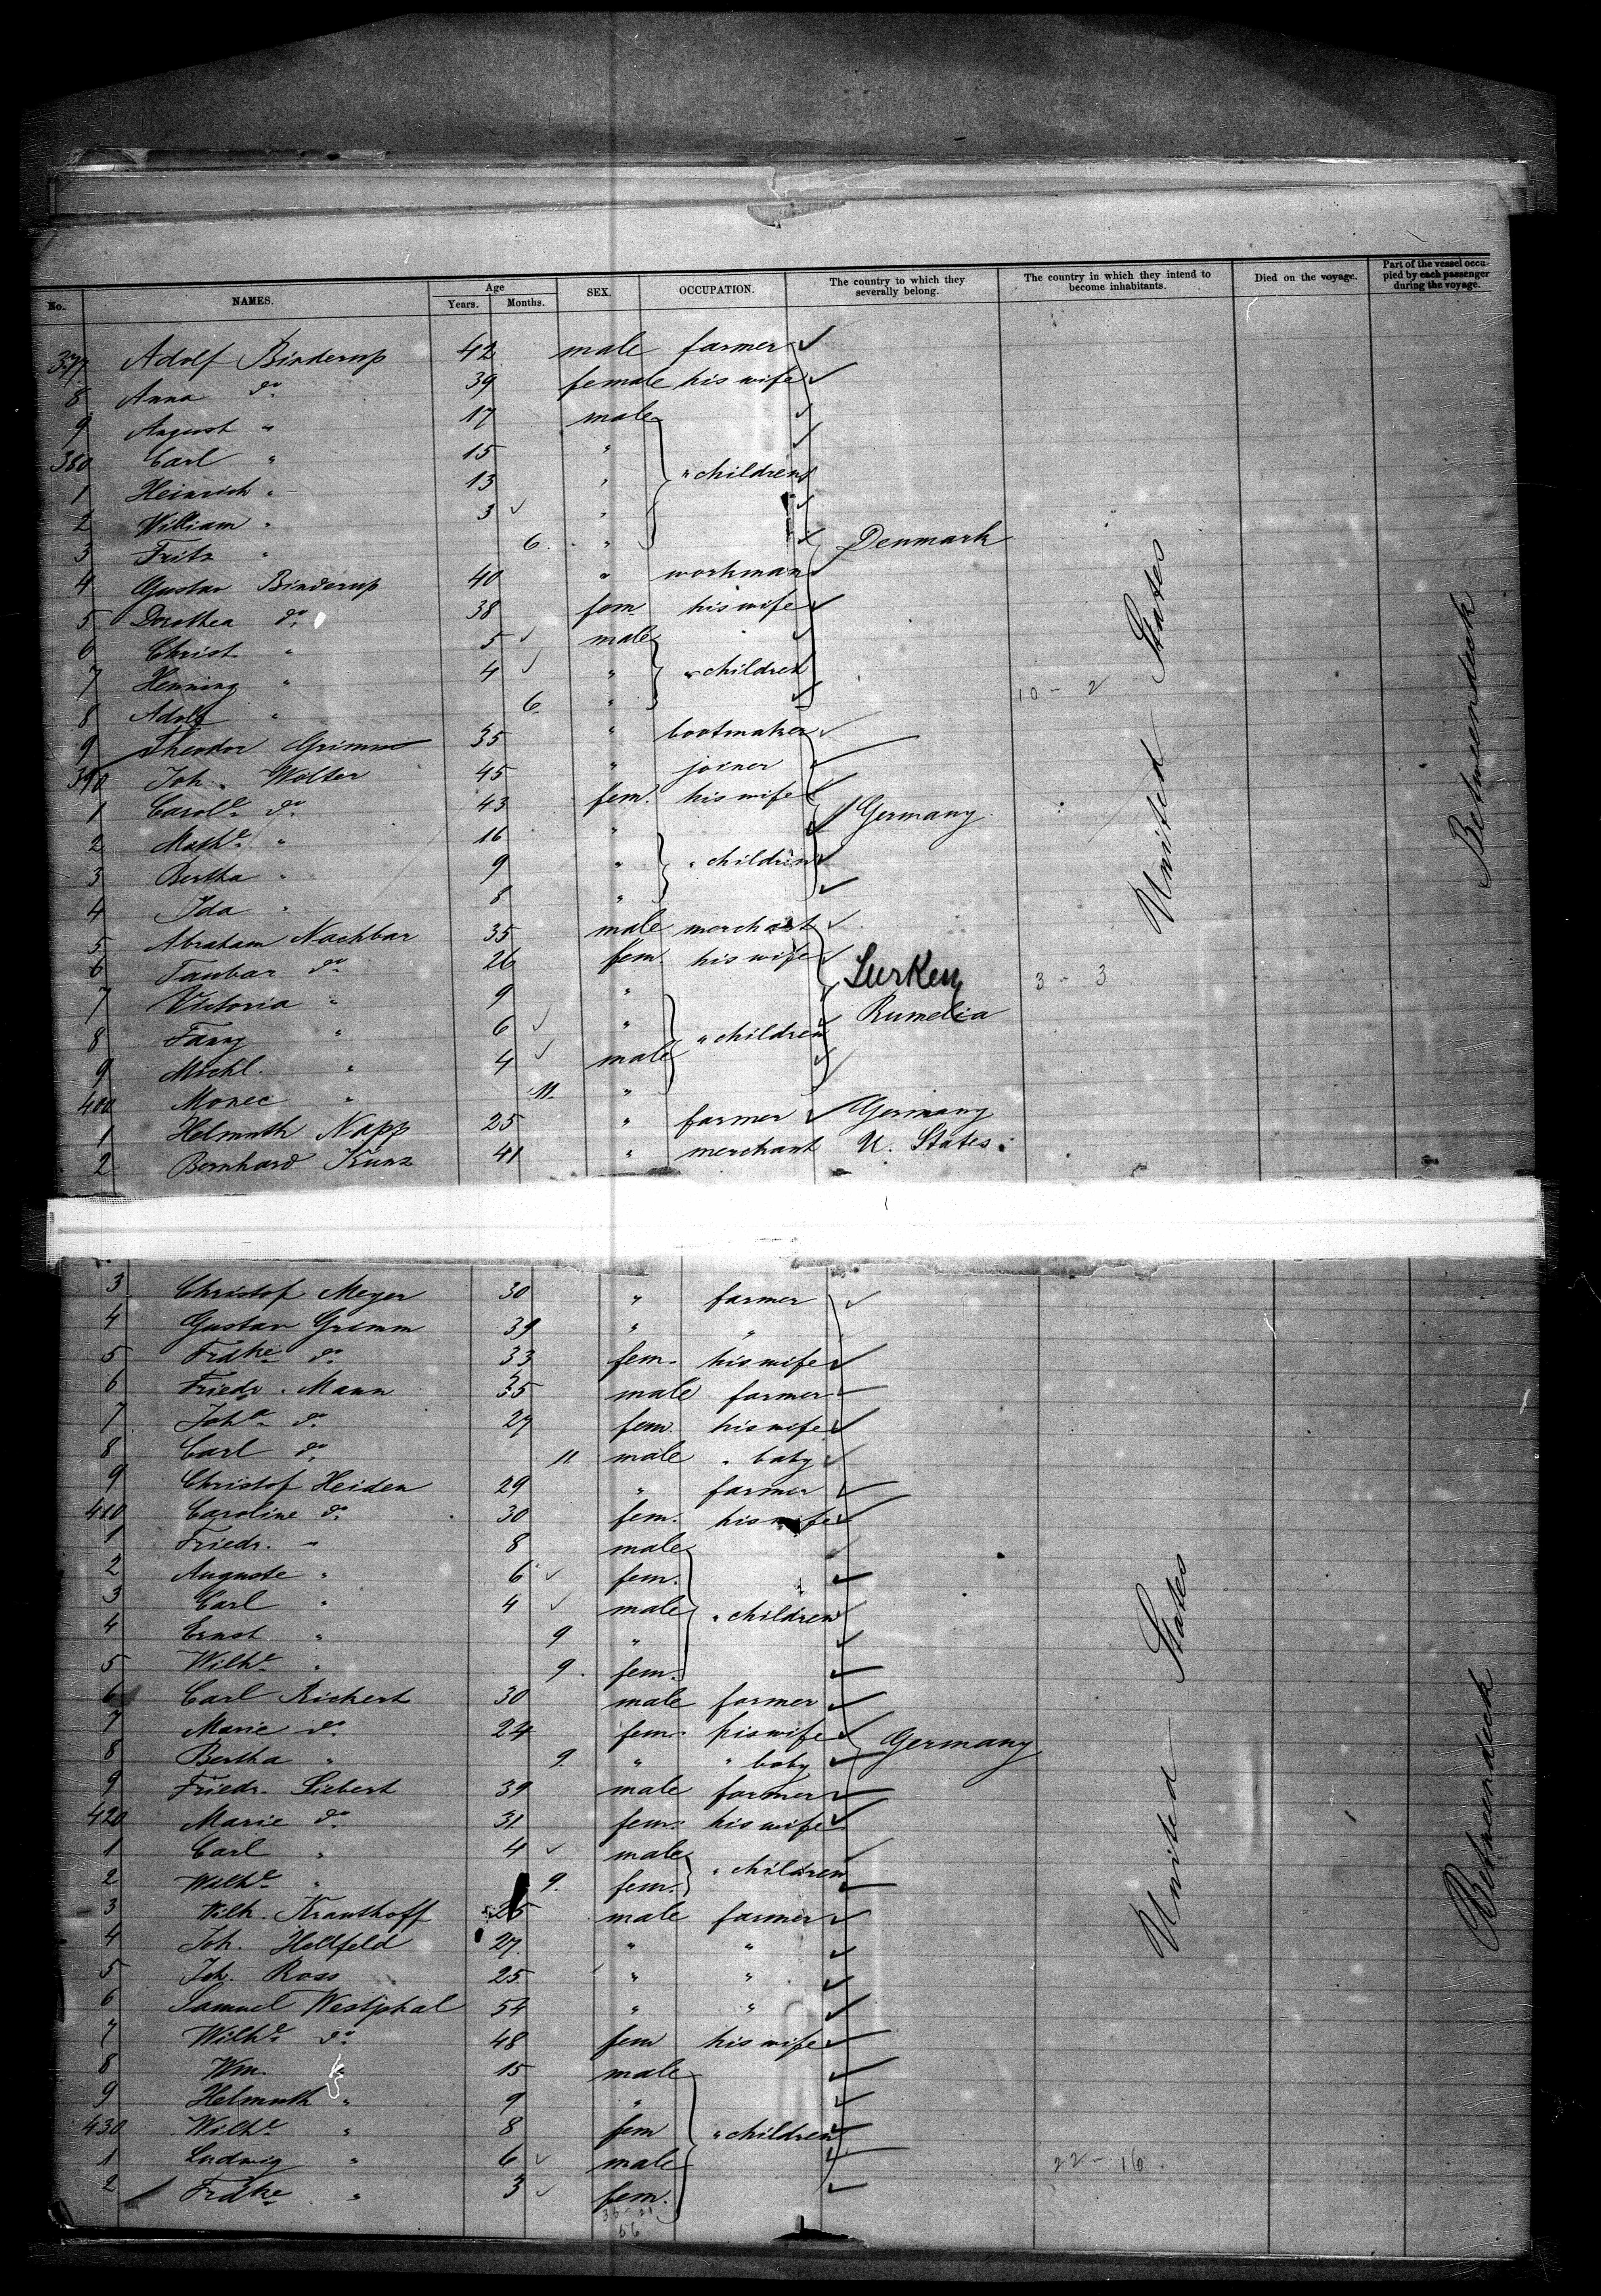 No. NAMES. Age Years. Months. SEX. OCCUPATION. The country to which they severally belong. The country in which they intend to become inhabitants. Died on the voyage. Part of the vessel occupied by each passenger during the voyage.
377 Adolf Binderup 42 male farmer
8 Anna do 39 female his wife
9 August " 17 male
380 Carl " 15 "
1 Heinrich " 13 " " children
2 William " 3 "
3 Fritz " 6 " Denmark
4 Gustav Binderup 40 " workman
5 Dorothea do 38 fem his wife
6 Christ " 5 male
7 Henning " 4 " " children 10 - 2
8 Adolf " 6 "
9 Theodor Grimm 35 " bootmaker
390 Joh. Wolter 45 " joiner
1 Carole do 43 fem. his wife Germany
2 Mathe " 16 "
3 Bertha " 9 " " children
4 Ida " 8 "
5 Abraham Nachbar 35 male merchant
6 Taubar do 26 fem. his wife Turkey 3 - 3
7 Victoria " 9 " Rumelia
8 Fanny " 6 " " children
9 Michl. " 4 male
400 " 11 "
1 Helmuth Napp 25 " farmer Germany
2 Bernhard Kunz 41 " merchant U. States
United States
Betweendeck
3 Christof Meyer 30 " farmer
4 Gustav Grimm 39 " "
5 Frdke do 33 fem. his wife
6 Friedr. Mann 35 male farmer
7 Joha do 27 fem. his wife
8 Carl do 11 male " baby
9 Christof Heiden 29 " farmer
410 Caroline do 30 fem. his wife
1 Friedr. " 8 male
2 Auguste " 6 fem.
3 Carl " 4 male " children
4 Ernst " 9 "
5 Wilhe " 9 fem.
6 Carl Rickert 30 male farmer
7 Marie do 24 fem. his wife Germany
8 Bertha " 9 " " baby
9 Friedr. Siebert 39 male farmer
420 Marie do 31 fem. his wife
1 Carl " 4 male " children
2 Wilhe " 9 fem.
3 Wilh. Krauthoff 25 male farmer
4 Joh. Hellfeld 27 " "
5 Joh. Ross 25 " "
6 Samuel Westphal 54 " "
7 Wilhe do 48 fem his wife
8 Wm. " 15 male
9 Helmuth " 9 "
430 Wilhe " 8 fem " children
1 Ludwig " 6 male 22 - 16
2 Frdke " 3 fem.
56
United States
Betweendeck